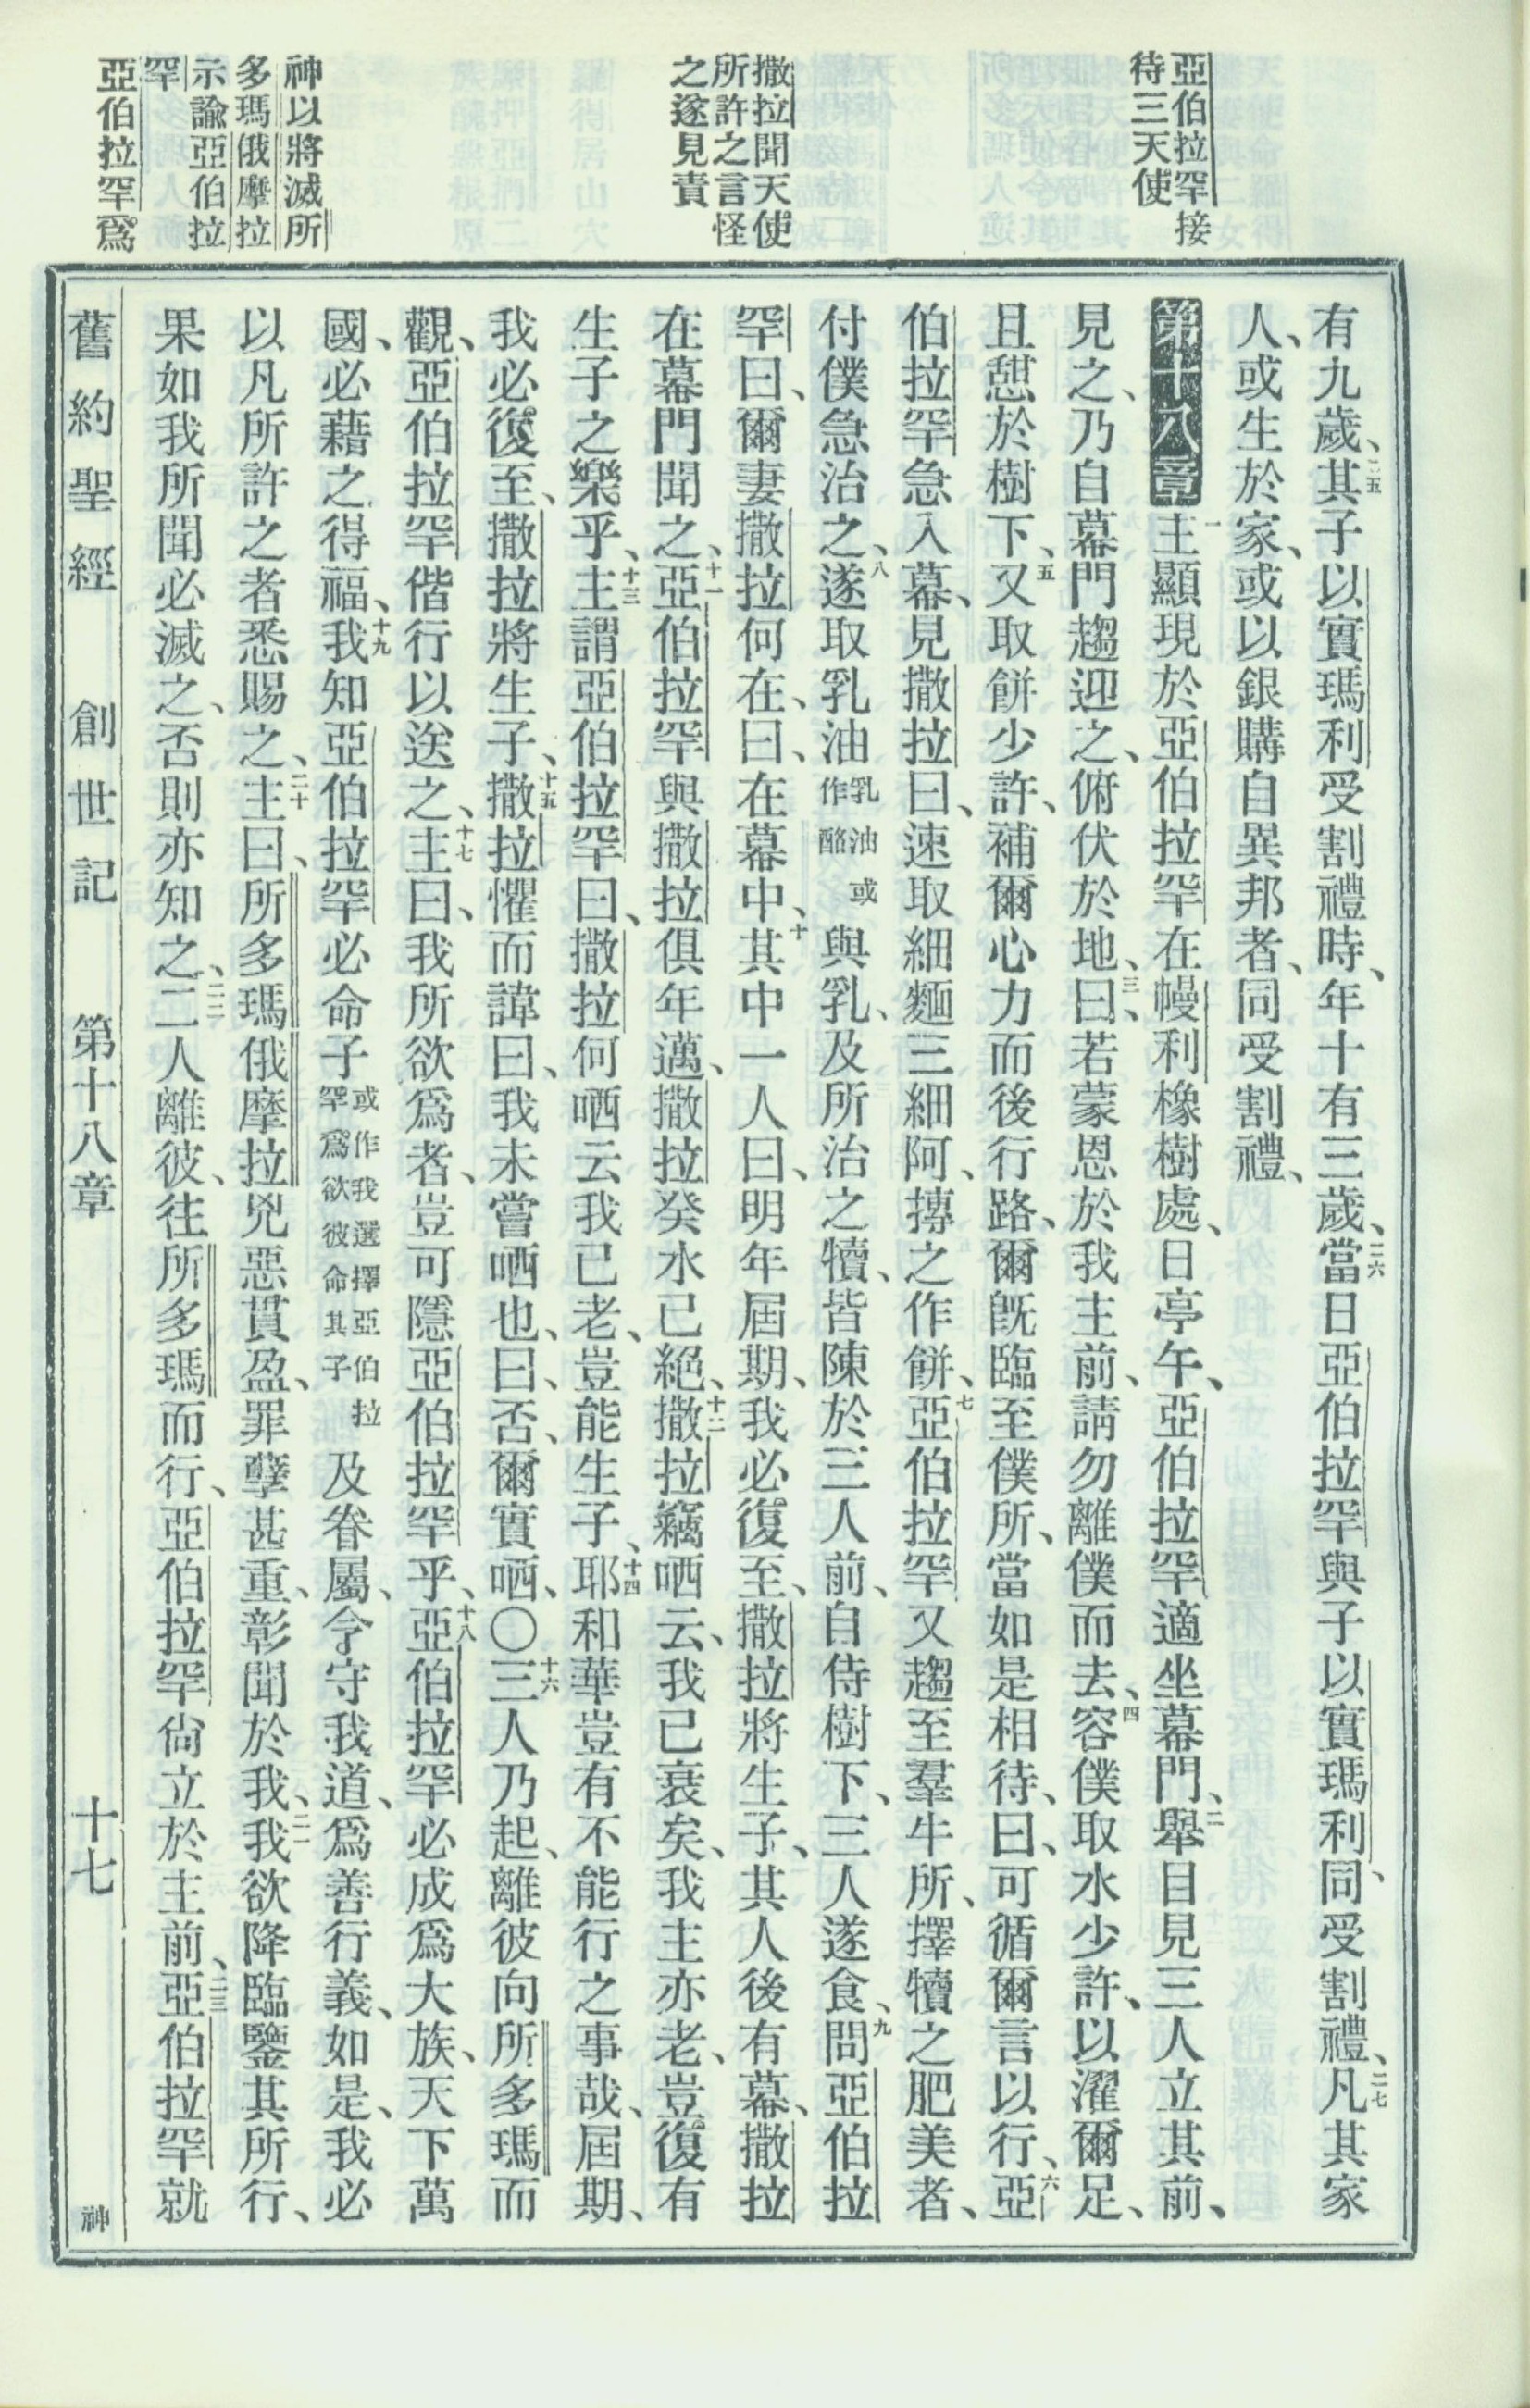 亞伯拉罕接
待三天使
撒拉聞天使
所許之言怪
之遂見責
神以將滅所
多瑪俄摩拉
示諭亞伯拉
罕
亞伯拉罕爲
有九歲、二五其子以實瑪利受割禮時、年十有三歲、二六當日亞伯拉罕與子以實瑪利、同受割禮、二七凡其家
人、或生於家、或以銀購自異邦者、同受割禮、
第十八章 一主顯現於亞伯拉罕在幔利橡樹處、日亭午、亞伯拉罕適坐幕門、二舉目見三人立其前、
見之、乃自幕門趨迎之、俯伏於地、三曰、若蒙恩於我主前、請勿離僕而去、四容僕取水少許、以濯爾足、
且憇於樹下、五又取餅少許、補爾心力而後行路、爾旣臨至僕所、當如是相待、曰、可循爾言以行、六亞
伯拉罕急入幕、見撒拉曰、速取細麵三細阿、摶之作餅、七亞伯拉罕又趨至羣牛所、擇犢之肥美者、
付僕急治之、八遂取乳油乳油或作酪與乳、及所治之犢、皆陳於三人前、自侍樹下、三人遂食、九問亞伯拉
罕曰、爾妻撒拉何在、曰、在幕中、十其中一人曰、明年屆期、我必復至、撒拉將生子、其人後有幕、撒拉
在幕門聞之、十一亞伯拉罕與撒拉俱年邁、撒拉癸水已絕、十二撒拉竊哂云、我已衰矣、我主亦老、豈復有
生子之樂乎、十三主謂亞伯拉罕曰、撒拉何哂云我已老、豈能生子、十四耶和華豈有不能行之事哉、屆期、
我必復至、撒拉將生子、十五撒拉懼而諱曰、我未嘗哂也、曰、否、爾實哂、〇十六三人乃起、離彼向所多瑪而
觀、亞伯拉罕偕行以送之、十七主曰、我所欲爲者、豈可隱亞伯拉罕乎、十八亞伯拉罕必成爲大族、天下萬
國、必藉之得福、十九我知亞伯拉罕必命子或作我選擇亞伯拉罕爲欲彼命其子及眷屬、令守我道、爲善行義、如是、我必
以凡所許之者悉賜之、二十主曰、所多瑪俄摩拉兇惡貫盈、罪孽甚重、彰聞於我、二一我欲降臨鑒其所行、
果如我所聞必滅之、否則亦知之、二二二人離彼、往所多瑪而行、亞伯拉罕尙立於主前、二三亞伯拉罕就
舊約聖經 創世記 第十八章 十七 神